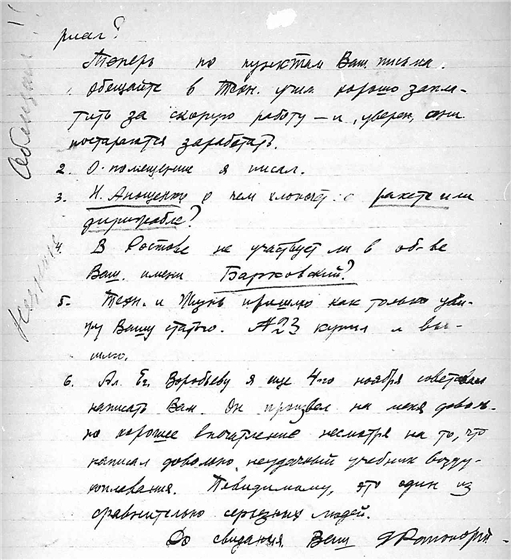 риал?
Теперь по пунктам Ваш. письма.
обещайте в Техн. учил. хорошо запла-
тить за скорую работу — и, уверен, они
постараются заработать.
2. О помещение я писал.
3. Н. Анощенко о чем хлопочет о ракете или
дирижабле?
4. В Ростове не участвует ли в об-ве
Ваш. имени Барховский?
5. Техн. и Жизнь пришлю как только уви-
жу Вашу статью. А 23 купил и вы-
шлю.
6. Ал. Ег. Воробьеву я еще 4-го ноября советовал
написать Вам. Он произвел на меня доволь-
но хорошее впечатление несмотря на то, что
написал довольно неудачный учебник возду-
хоплавания. Повидимому, это один из
сравнительно серьезных людей.
До свидания Ваш